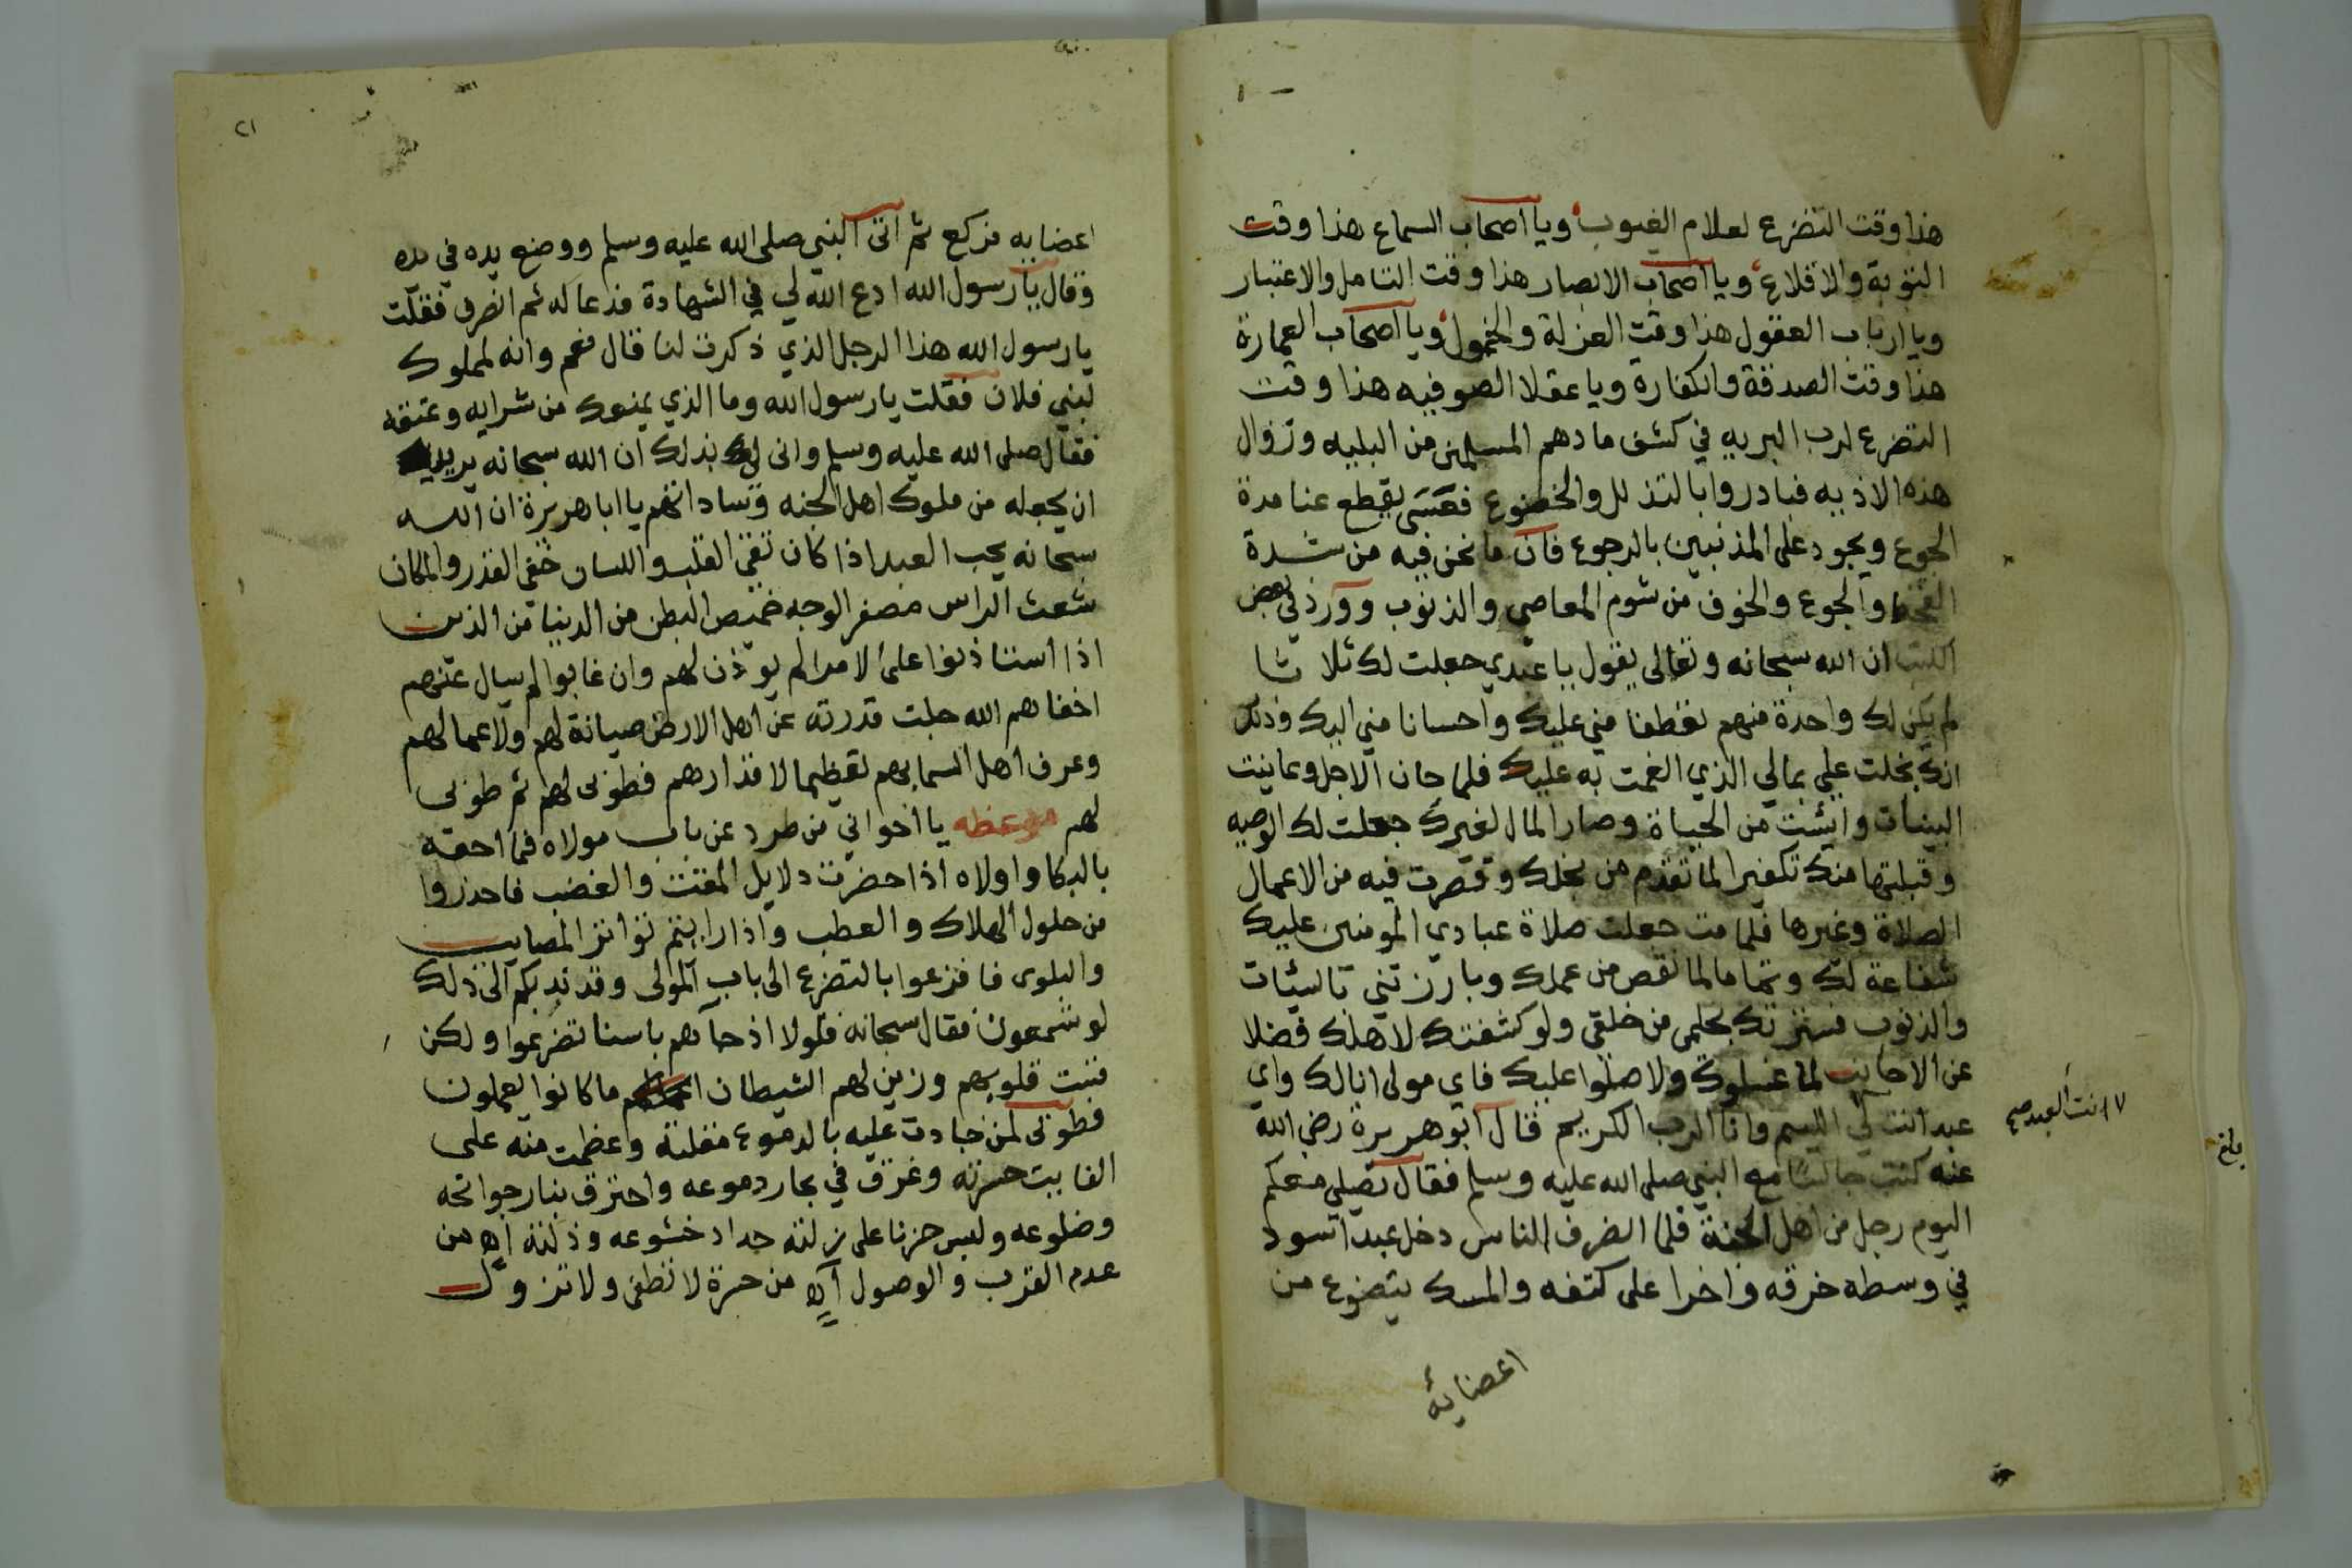 هذا وقت التضرع لعلام الغيوب ويا اصحاب السماع هذا وقت
التوبة والاقلاع ويا اصحاب الابصار هذا وقت التامل والاعتبار
ويا ارباب العقول هذا وقت العزلة والخمول ويا اصحاب العمارة
هذا وقت الصدقة والكفارة ويا عقلا الصوفيه هذا وقت
التضرع لرب البريه في كشف ما دهم المسلمين من البليه وزوال
هذه الاذيه فبادروا بالتذلل والخضوع فعسى يقطع عنا مدة
الجوع ويجود على المذنبين بالرجوع فان ما نحن فيه من شدة
القحط والجوع والخوف من شوم المعاصي والذنوب وورد في بعض
الكتب ان الله سبحانه وتعالى يقول يا عبدي جعلت لك ثلاثا
لم يكن لك واحدة منهم تعطفا مني عليك واحسانا مني اليك وذلك
انك بخلت علي بمالي الذي انعمت به عليك فلما حان الاجل وعاينت
البينات وايئست من الحياة وصار المال لغيرك جعلت لك الوصيه
وقبلتها منك تكفيرا لما تقدم من بخلك وقصرت فيه من الاعمال
الصلاة وغيرها فلما مت جعلت صلاة عبادي المومنين عليك
شفاعة لك وتماما لما نقص من عملك وبارزتني بالسيئات
والذنوب فسترتك بحلمي من خلقي ولو كشفتك لاهلك فضلا
عن الاجانب لما غسلوك ولا صلوا عليك فاي مولى انا لك واي
عبد انت لي اللييم وانا الرب الكريم قال ابو هريرة رضي الله
عنه كنت جالسا مع النبي صلى الله عليه وسلم فقال يصلي معكم
اليوم رجل من اهل الجنة فلما انصرف الناس دخل عبد اسود
في وسطه خرقه واخرا على كتفه والمسك يتضوع من
اعضائه
انت العبد صح
٢١
اعضايه فركع ثم اتى النبي صلى الله عليه وسلم ووضع يده في يده
وقال يا رسول الله ادع الله لي في الشهادة فدعا له ثم انصرف فقلت
يا رسول الله هذا الرجل الذي ذكرت لنا قال نعم وانه لمملوك
لبني فلان فقلت يا رسول الله وما الذي يمنعك من شرايه وعتقه
فقال صلى الله عليه وسلم وانى لك بذلك ان الله سبحانه يريد
ان يجعله من ملوك اهل الجنه وساداتهم يا ابا هريرة ان الله
سبحانه يحب العبد اذا كان تقي القلب واللسان خفي القدر والمكان
شعث الراس مصفر الوجه خميص البطن من الدنيا من الذين
اذا استاذنوا على الامرا لم يوذن لهم وان غابوا لم يسال عنهم
اخفاهم الله جلت قدرته عن اهل الارض صيانة لهم ولاعمالهم
وعرف اهل السما بهم تعظيما لاقدارهم فطوبى لهم ثم طوبى
لهم موعظه يا اخواني من طرد عن باب مولاه فما احقه
بالبكا واولاه اذا حضرت دلايل المقت والغضب فاحذروا
من حلول الهلاك والعطب واذا رايتم تواتر المصايب
والبلوى فافزعوا بالتضرع الى باب المولى وقد ندبكم الى ذلك
لو تسمعون فقال سبحانه فلولا اذ جاهم باسنا تضرعوا ولكن
قست قلوبهم وزين لهم الشيطان ما كانوا يعملون
فطوبى لمن جادت عليه بالدموع مقلته وعظمت منه على
الفايت حسرته وغرق في بحار دموعه واحترق بنار جوانحه
وضلوعه ولبس حزنا على زلته حداد خشوعه وذلته اه من
عدم القرب والوصول اه من حسرة لا تطفى ولا تزول